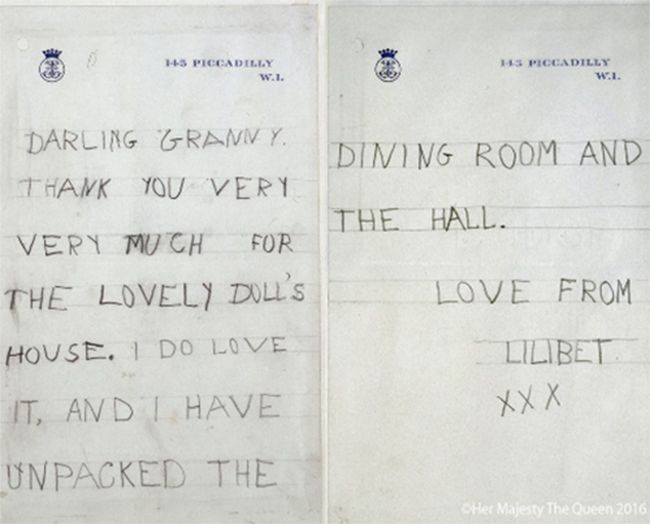 145 PICCADILLY
W.1.
DARLING GRANNY.
THANK YOU VERY
VERY MUCH FOR
THE LOVELY DOLL'S
HOUSE. I DO LOVE
IT, AND I HAVE
UNPACKED THE
145 PICCADILLY
W.1.
DINING ROOM AND
THE HALL.
LOVE FROM
LILIBET
XXX
©Her Majesty The Queen 2016